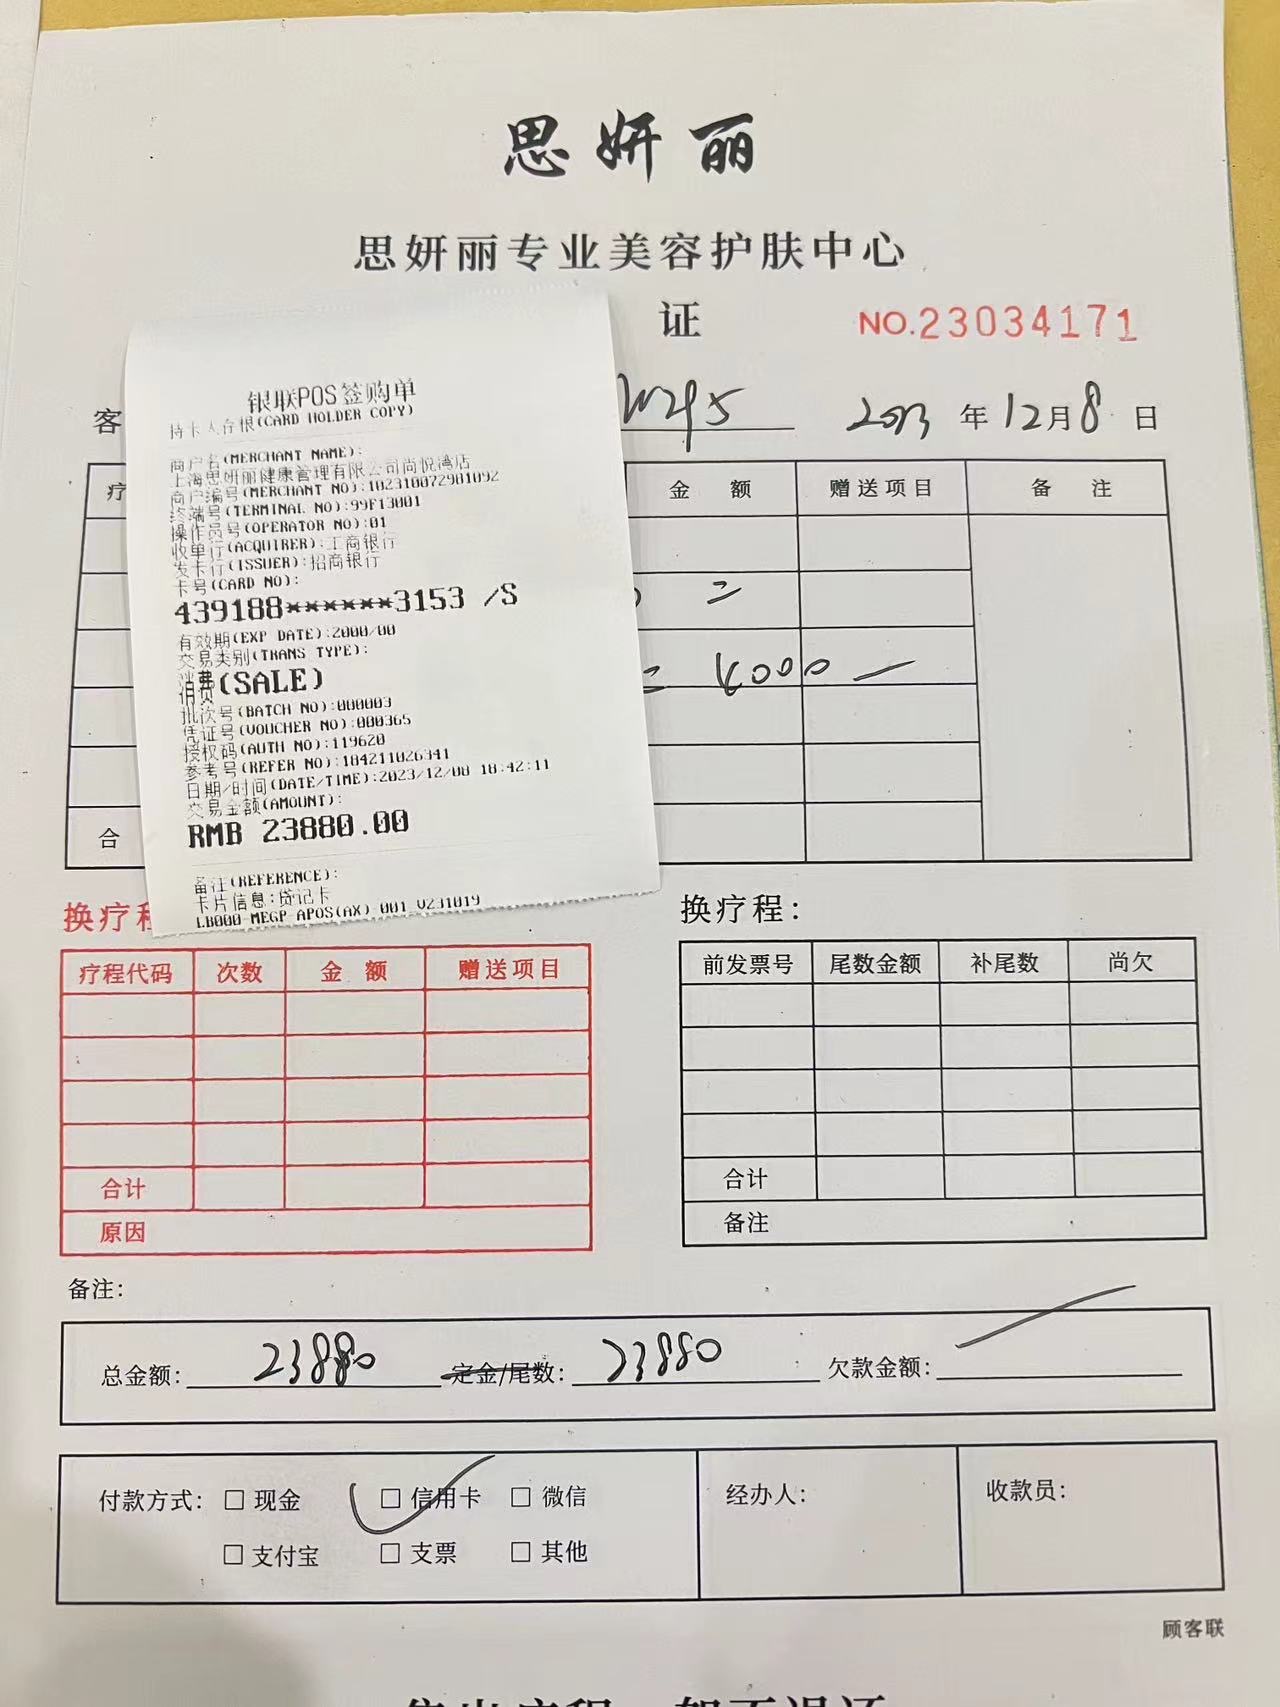 思妍丽
思妍丽专业美容护肤中心
证 NO.23034171
客 2023 年 12 月 8 日
疗 金 额 赠送项目 备 注
=
= 4000 —
合
银联POS签购单
持卡人存根(CARD HOLDER COPY)
商户名(MERCHANT NAME):
上海思妍丽健康管理有限公司尚悦湾店
商户编号(MERCHANT NO):102310072981092
终端号(TERMINAL NO):99F13001
操作员号(OPERATOR NO):01
收单行(ACQUIRER):工商银行
发卡行(ISSUER):招商银行
卡号(CARD NO):
439188******3153 /S
有效期(EXP DATE):2000/00
交易类别(TRANS TYPE):
消费(SALE)
批次号(BATCH NO):000003
凭证号(VOUCHER NO):000365
授权码(AUTH NO):119620
参考号(REFER NO):184211026341
日期/时间(DATE/TIME):2023/12/08 18:42:11
交易金额(AMOUNT):
RMB 23880.00
备注(REFERENCE):
卡片信息:贷记卡
LB000-MEGP APOS(AX) 001 V231019
换疗程
疗程代码 次数 金 额 赠送项目
合计
原因
换疗程:
前发票号 尾数金额 补尾数 尚欠
合计
备注
备注:
总金额: 23880 定金/尾数: 23880 欠款金额:
付款方式: □ 现金 □ 信用卡 □ 微信 经办人: 收款员:
□ 支付宝 □ 支票 □ 其他
顾客联